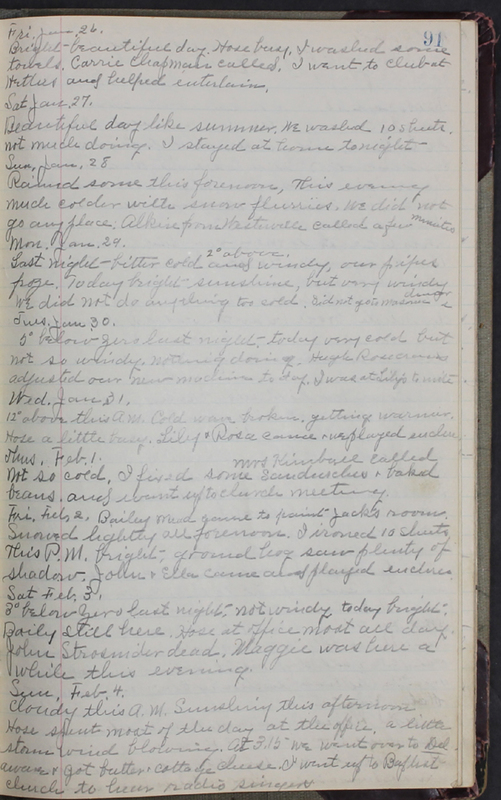 91
Fri. Jan 26.
Bright - beautiful day. Hose busy, I washed some
towels. Carrie Chapman called. I went to club at
Hetties and helped entertain.
Sat Jan 27.
Beautiful day like summer. We washed 10 sheets.
not much doing. I stayed at home tonight -
Sun, Jan, 28
Rained some this forenoon, This evening
much colder with snow flurries. We did not
go any place. from called a few minutes
Mon. Jan. 29.
2° above.
Last night - bitter cold and windy, our pipes
froze. Today bright - sunshine, but very windy
We did not do anything too cold. Did not go to
Tues. Jan 30.
5° below zero last night - today very cold but
not so windy. nothing doing. Hugh Rosecrans
adjusted our new machine to day. I was at Lily's to nite
Wed. Jan 31.
12° above this A.M. Cold wave broken. getting warmer.
Hose a little busy. Lily & Rosa came & we played euchre
Thus. Feb. 1. Mrs Kimball called
Not so cold, I fixed some Sandwiches & baked
beans. and went up to church meeting
Fri, Feb, 2, Bailey Mead came to paint Jack's room.
Snowed lightly all forenoon. I ironed 10 sheets
This P.M. bright - ground hog saw plenty of
shadow. John & Ella came and played euchre
Sat Feb, 3,
3° below zero last night - not windy today bright -
Baily still here. Hose at office most all day.
John Strosnider dead. Maggie was here a
while this evening.
Sun, Feb. 4.
Cloudy this A.M. Sunshiny this afternoon
Hose spent most of the day at the office, a little
storm wind blowing. At 3.15 we went over to Del
aware & got butter & cottage cheese. I went up to Baptist
church to hear radio singers